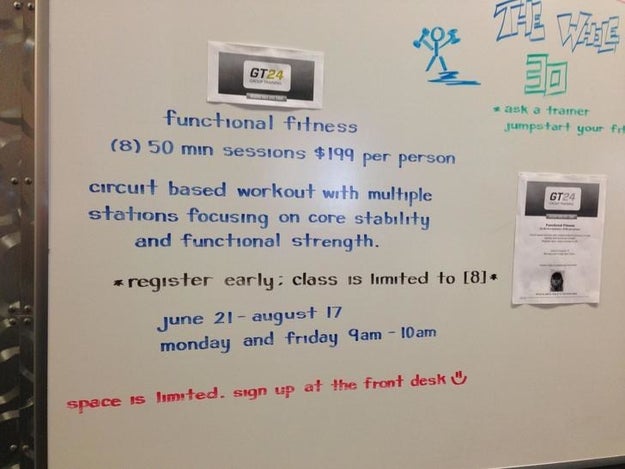 GT24
GROUP TRAINING
functional fitness
(8) 50 min sessions $199 per person
circuit based workout with multiple
stations focusing on core stability
and functional strength.
*register early; class is limited to [8]*
june 21 - august 17
monday and friday 9am - 10am
space is limited. sign up at the front desk
THE WHOLE
30
*ask a trainer
jumpstart your
GT24
Functional Fitness